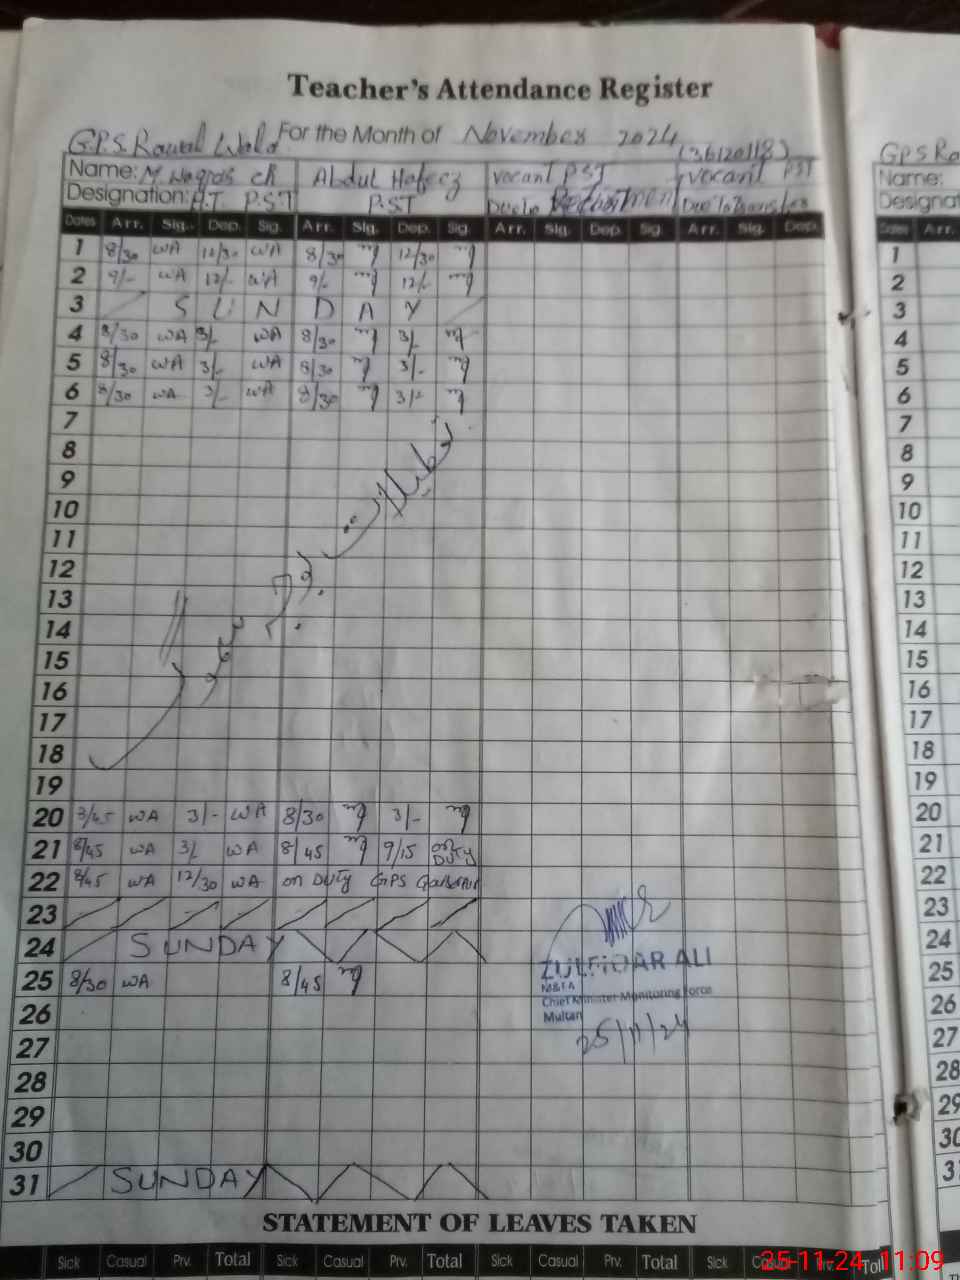 Teacher's Attendance Register
G.P.S. Rawal Wala For the Month of November 2024 (36120118)
Name: M. Waqras ch Abdul Hafeez vacant PST vacant PST
Designation: H.T. P.S.T P.S.T Due to Due To Transfer
Dates Arr. Sig. Dep. Sig. Arr. Sig. Dep. Sig. Arr. Sig. Dep. Sig. Arr. Sig. Dep.
1 8/30 WA 12/30 WA 8/30 12/30
2 9/- WA 12/- WA 9/- 12/-
3 SUNDAY
4 8/30 WA 3/- WA 8/30 3/-
5 8/30 WA 3/- WA 8/30 3/-
6 8/30 WA 3/- WA 8/30 3/-
7
8
9
10
11
12
13
14
15
16
17
18
تعطیلات بوجہ سموگ
19
20 WA 3/- WA 8/30 3/-
21 8/45 WA 3/- WA 8/45 9/15 on DUTY
22 8/45 WA 12/30 WA on DUTY GPS
23
24 SUNDAY
25 8/30 WA 8/45
26
27
28
29
30
31 SUNDAY
ZULFIQAR ALI
M&EA
Chief Minister Monitoring Force
Multan
25/11/24
STATEMENT OF LEAVES TAKEN
Sick Casual Prv. Total Sick Casual Prv. Total Sick Casual Prv. Total Sick Casual Prv. Total
GPS Ra
Name:
Designat
Dates Arr.
1
2
3
4
5
6
7
8
9
10
11
12
13
14
15
16
17
18
19
20
21
22
23
24
25
26
27
28
29
30
31
25-11-24 11:09